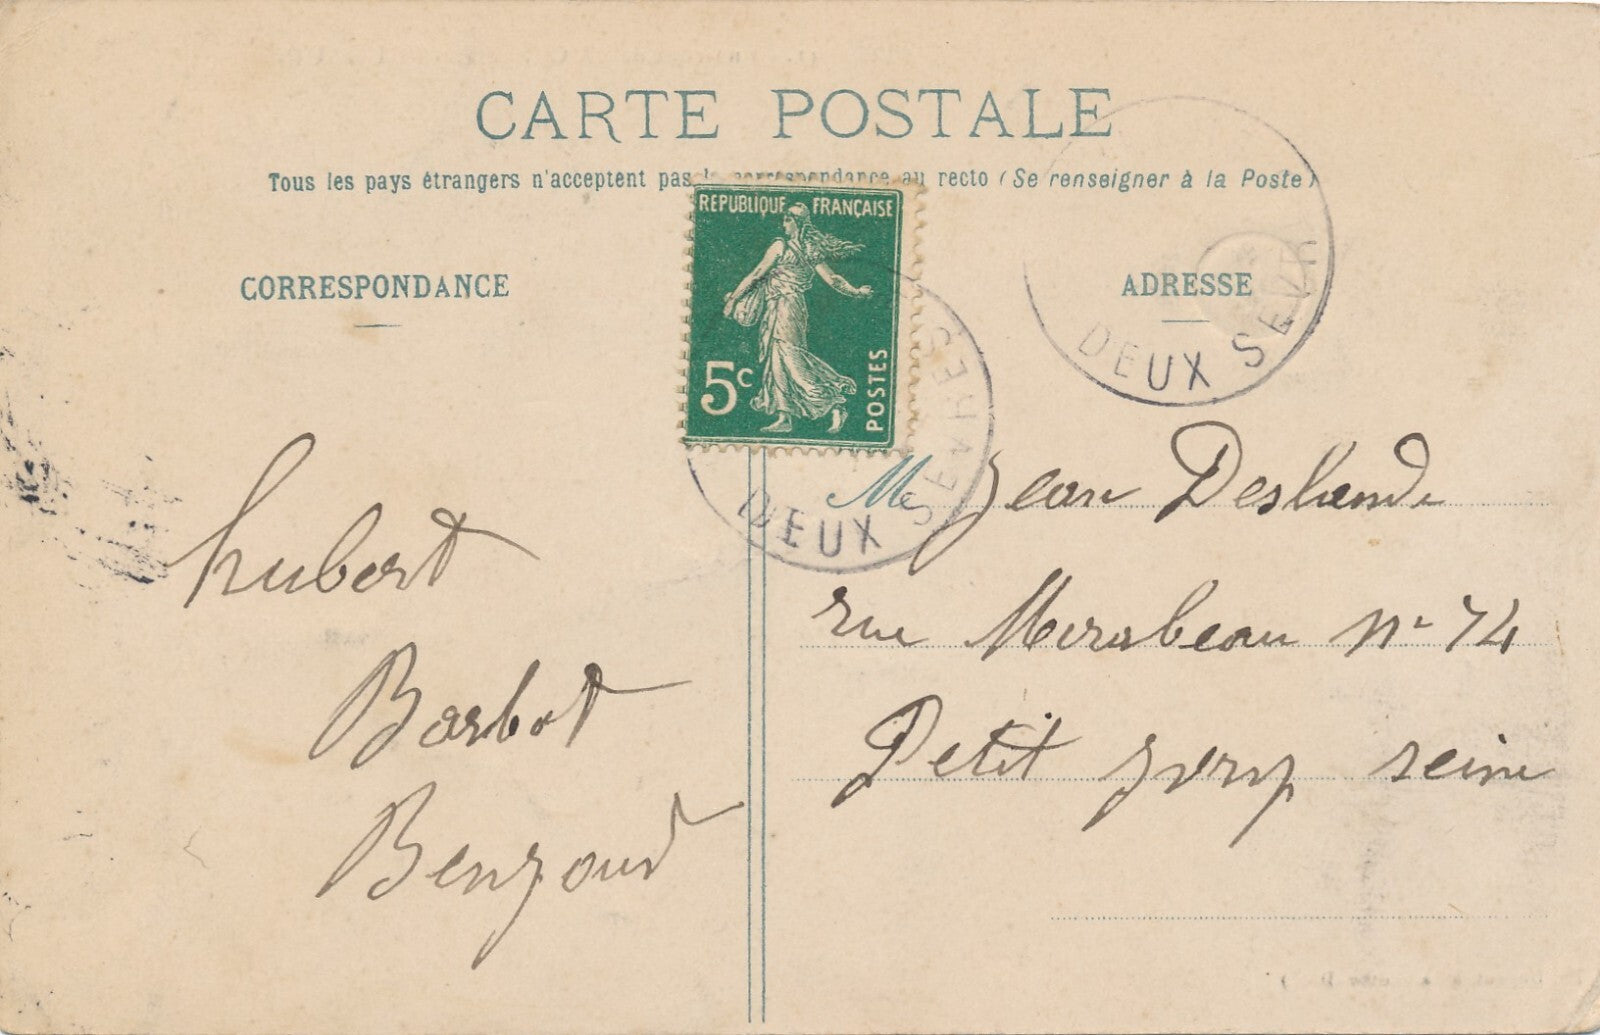 CARTE POSTALE
Tous les pays étrangers n'acceptent pas la correspondance au recto (Se renseigner à la Poste)
REPUBLIQUE FRANÇAISE
5c
POSTES
CORRESPONDANCE
ADRESSE
DEUX SEVRES
DEUX SEVRE
hubert
Barbot
M Jean Deslande
rue Mirabeau No 74
Petit yvry seine